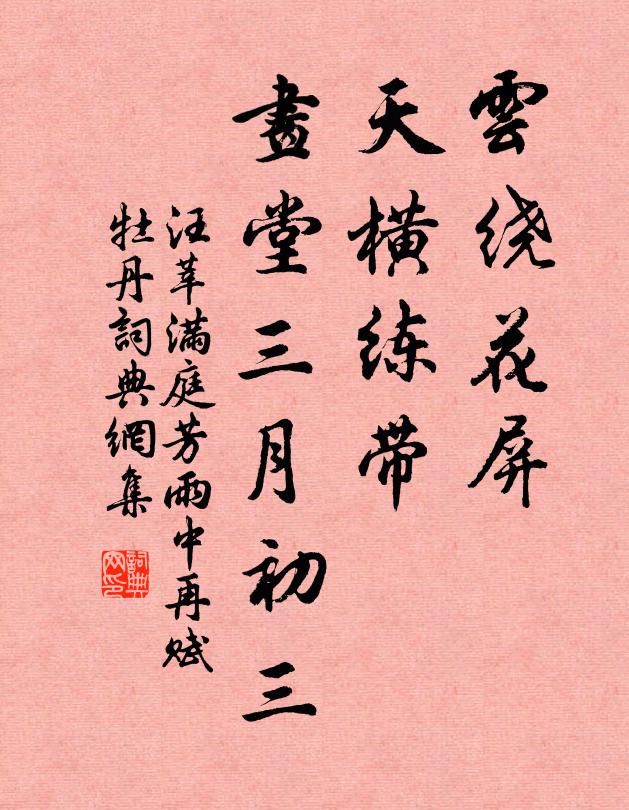 雲绕花屏
天横练带
畫堂三月初三
汪莘满庭芳雨中再赋
牡丹詞典網集
詞典網印